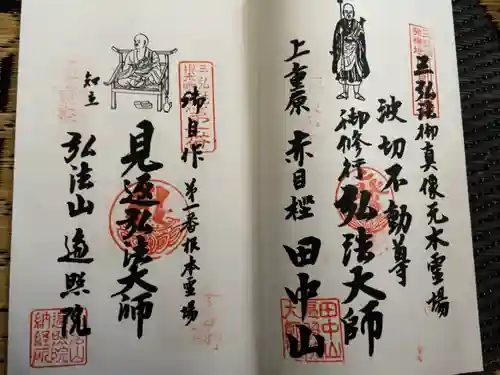 三弘法御真像元木霊場
波切不動尊
御修行弘法大師
上重原 赤目樫 田中山
御自作 第一番根本霊場
見返弘法大師
知立
弘法山 遍照院
弘法山遍照院納経所